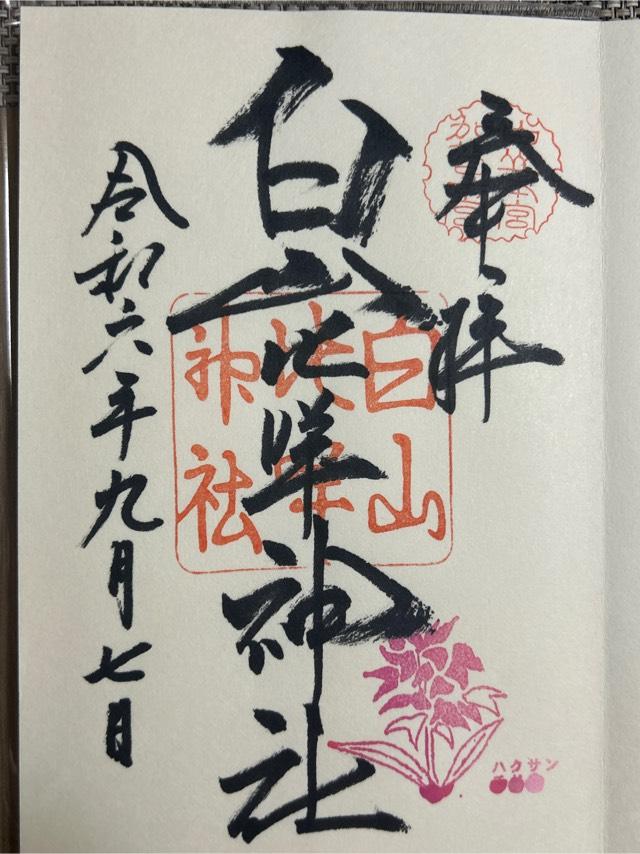 奉拝
白山比咩神社
令和六年九月七日
白山
比咩
神社
ハクサン